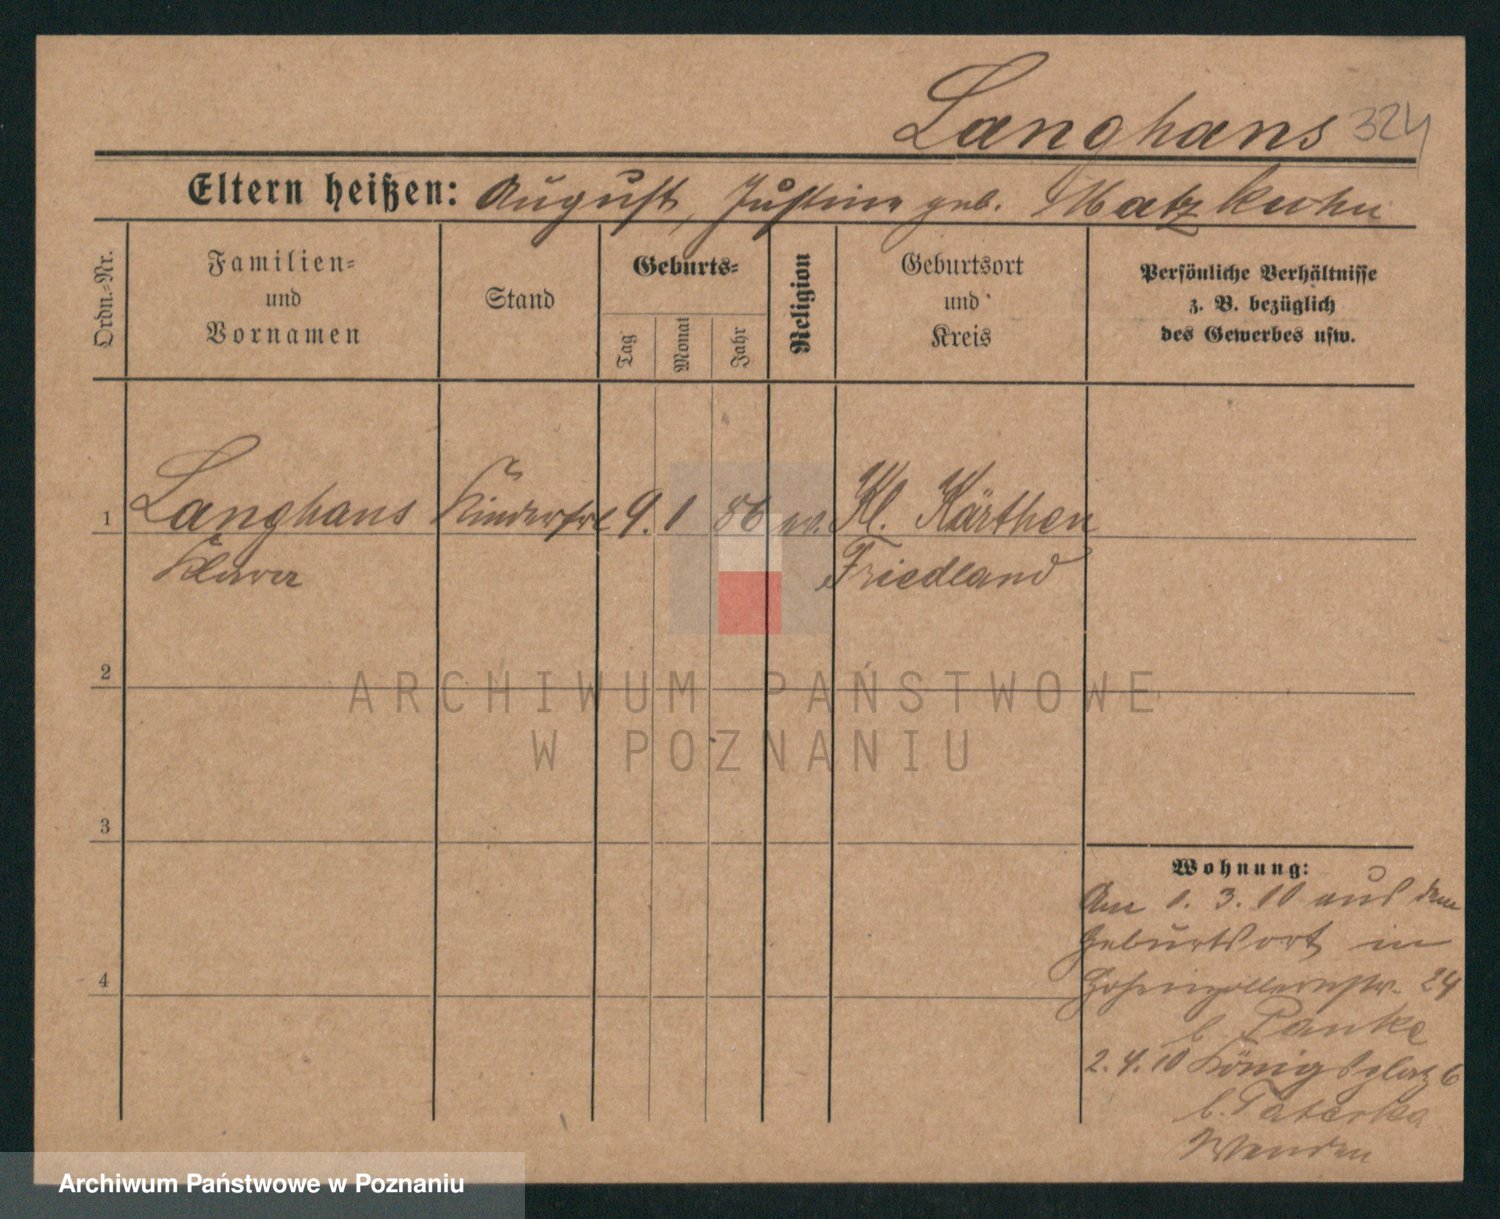 Langhans 324
Eltern heißen: August, Justine geb. Matzkuhn
Ordn.-Nr.
Familien-
und
Vornamen
Stand
Geburts-
Tag
Monat
Jahr
Religion
Geburtsort
und
Kreis
Persönliche Verhältnisse
z. B. bezüglich
des Gewerbes usw.
1 Langhans Kinderfrl 9. 1 86 ev. Kl. Kärthen
Klara Friedland
2
ARCHIWUM PAŃSTWOWE
W POZNANIU
3
Wohnung:
Am 1. 3. 10 aus dem
Geburtsort in
4
Hohenzollernstr. 24
b. Panke
2. 4. 10 Königsplatz 6
b. Taterka
Archiwum Państwowe w Poznaniu